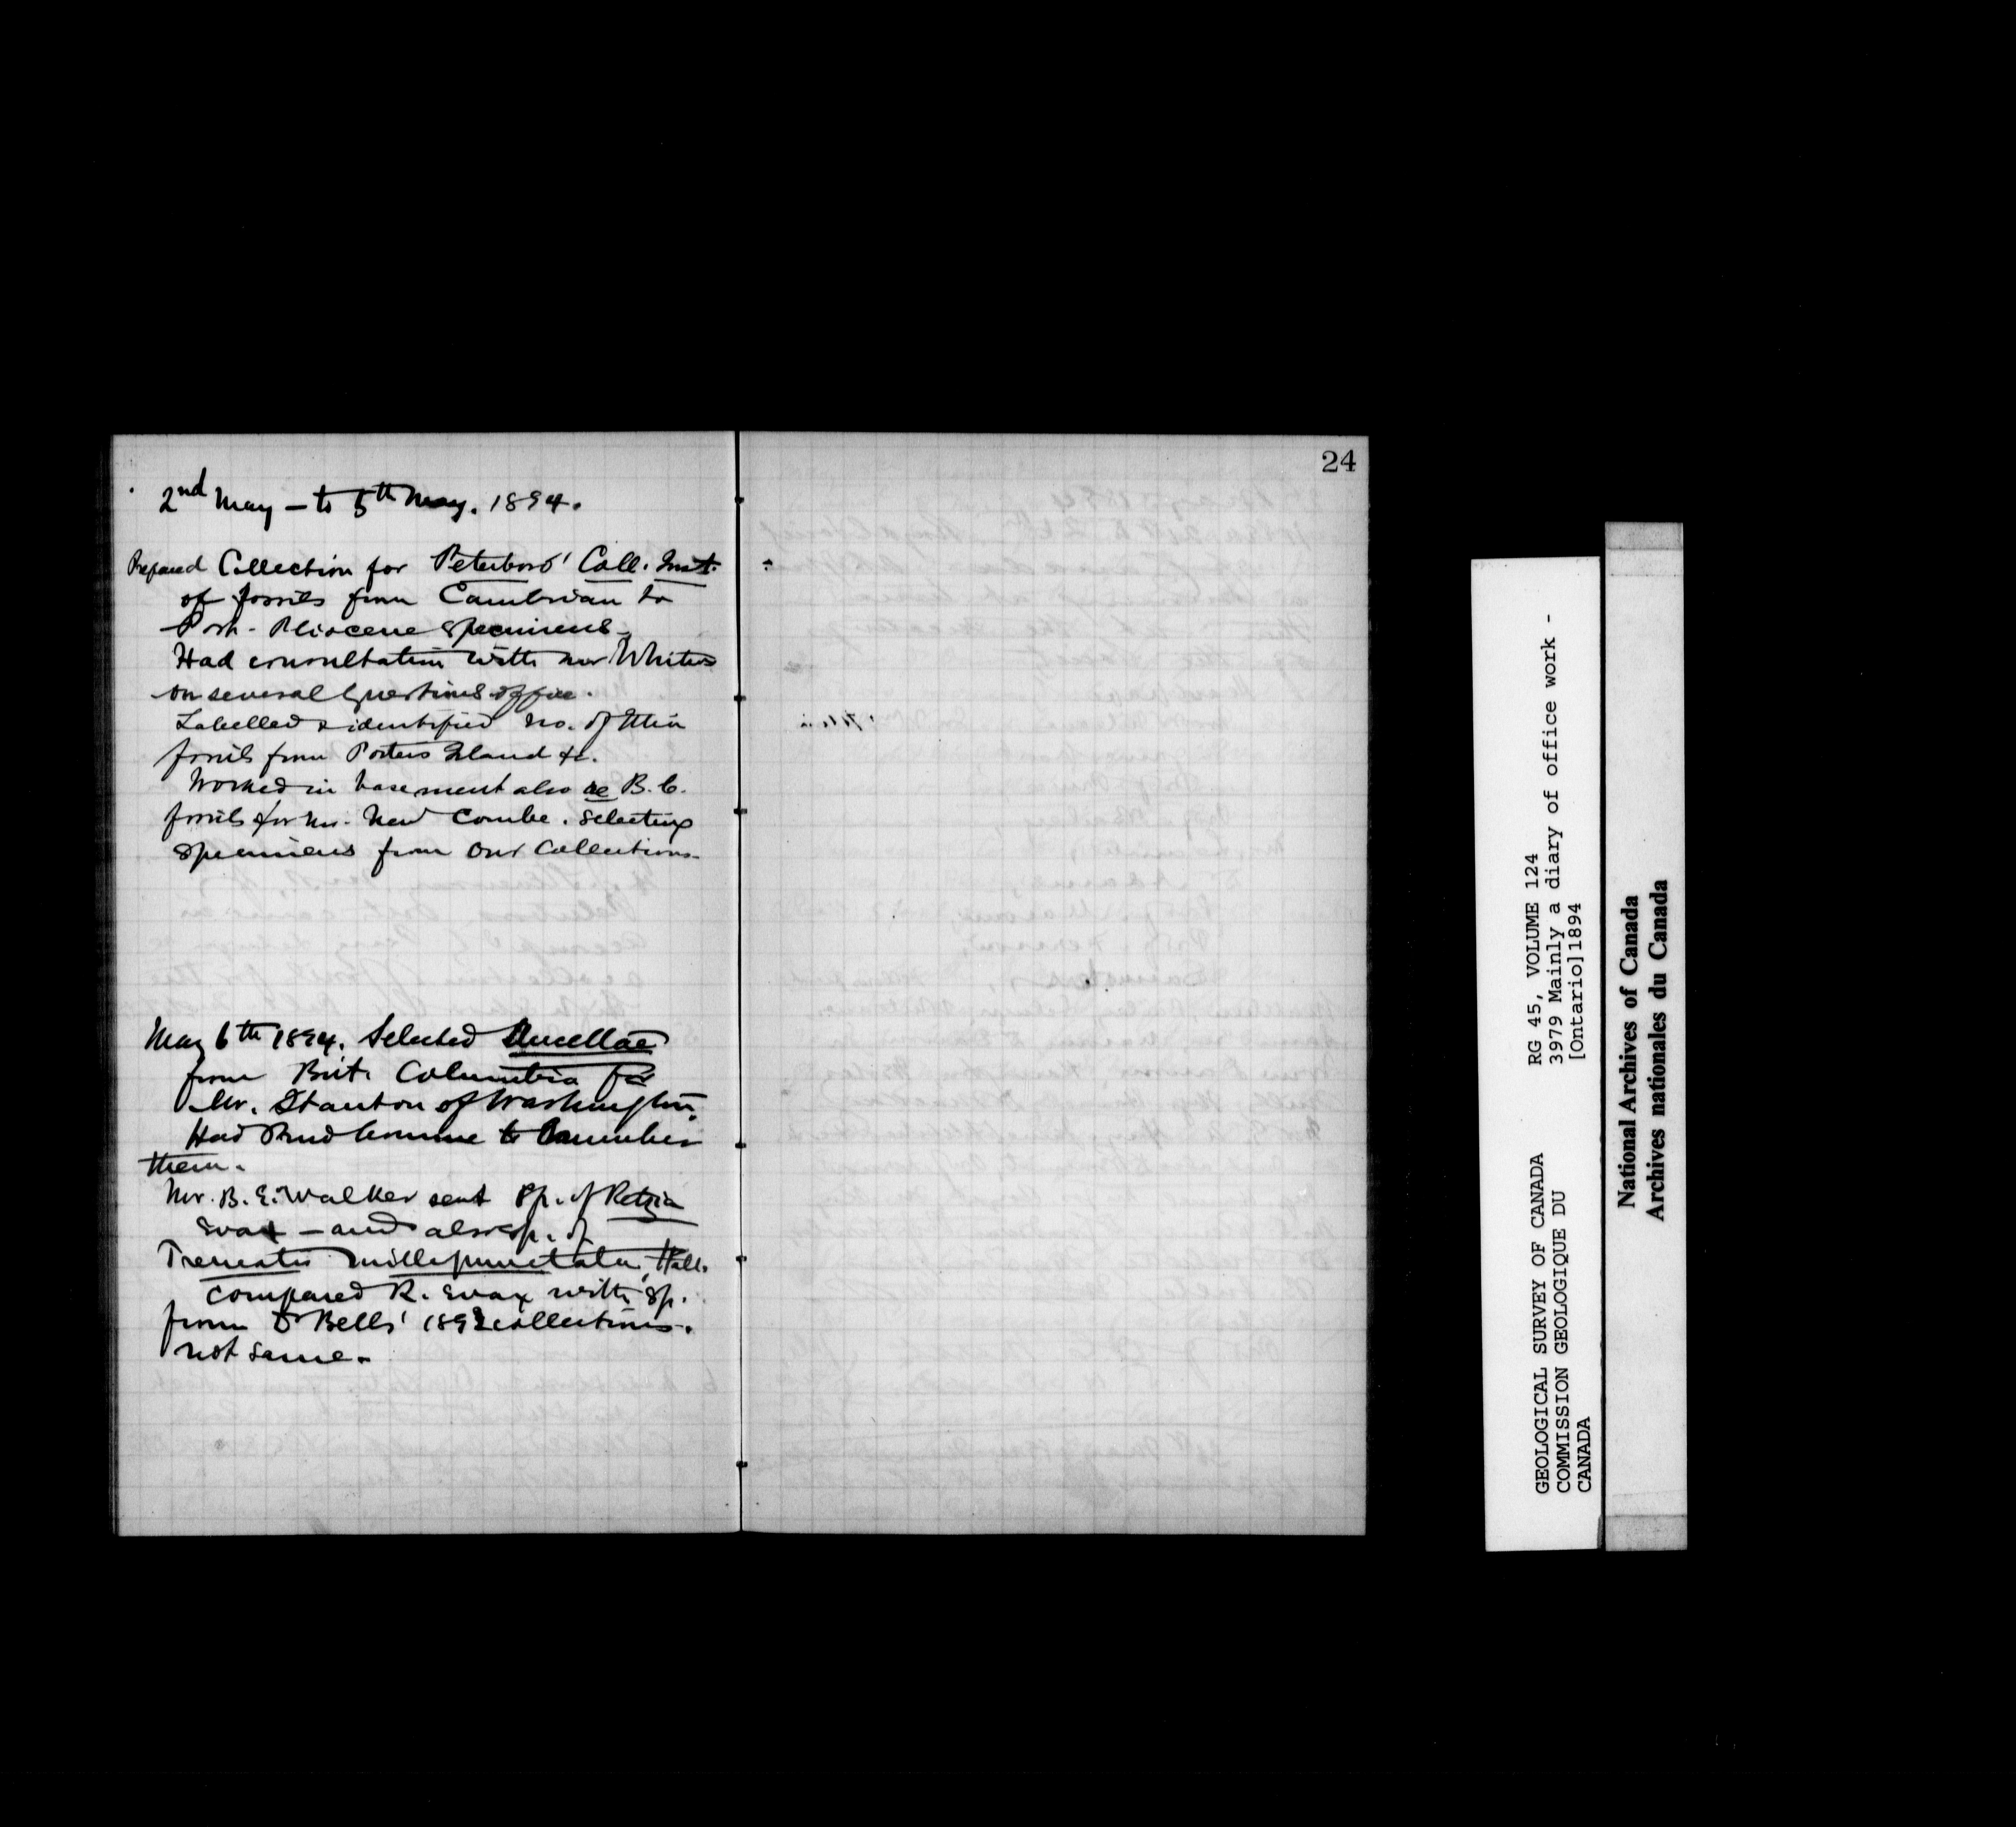 2nd May - to 5th May. 1894.
Prepared Collection for Peterboro' Coll. Inst.
of fossils from Cambrian to
Post-Pliocene specimens -
Had consultation with Mr Whiteaves
on several questions office.
Labelled & identified no. of Utica
fossils from Porters Island &c.
Worked in basement also re B.C.
fossils for Mr. New Combe. Selecting
specimens from our Collections.
May 6th 1894. Selected Aucellae
from Brit. Columbia for
Mr. Stanton of Washington.
Had Prud'homme to number
them.
Mr. B. E. Walker sent sp. of Retzia
evax - and also sp. of
Trematis millepunctata, Hall.
compared R. evax with sp.
from Dr Bells' 1892 collections.
not same.
24
GEOLOGICAL SURVEY OF CANADA
COMMISSION GEOLOGIQUE DU
CANADA
RG 45, VOLUME 124
3979 Mainly a diary of office work -
[Ontario]1894
National Archives of Canada
Archives nationales du Canada